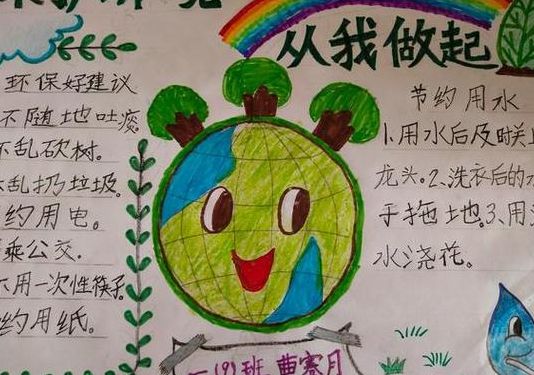 从我做起
环保好建议
不随地吐痰。
不乱砍树。
乱扔垃圾。
约用电。
乘公交。
用一次性筷子。
约用纸。
节约用水
1.用水后及时关
龙头。2、洗衣后的水
于拖地。3、用
水浇花。
一(9)班 曹 月